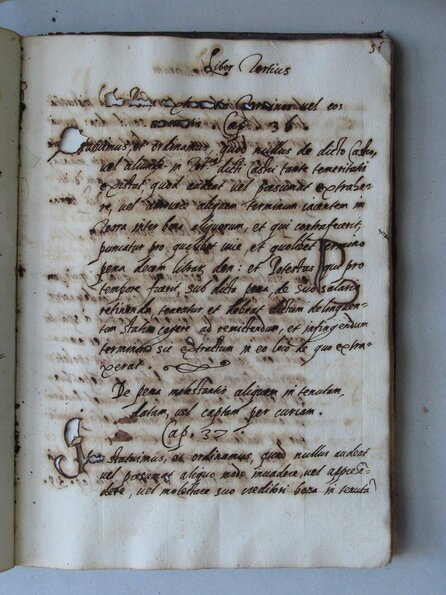 Liber Tertius
extra terminos vel eos
Cap. 36.
Statuimus et ordinamus, quod nullus de dicto Castro,
vel aliunde in dicti Castri tante temeritatis
existat, quod audeat vel presumat extrahe-
re, vel aliquem terminum iacentem in
terra inter bona aliquorum, et qui contrafecerit,
puniatur pro qualibet vice et quolibet termino
pena decem librar. den: et Potestas qui pro
tempore fuerit, sub dicta pena de suo salario
retinenda teneatur et debeat dictum delinquen-
tem statim cogere ad remittendum, et infingendum
terminum sic extractum in eo loco de quo extra-
xerat.
De pena molestantis aliquam in tenutam,
datam, vel captam per curiam.
Cap. 37
Statuimus, et ordinamus, quod nullus audeat
vel presumat aliquo modo invadere, vel appreē-
dere, vel molestare suo creditori bona in tenutā